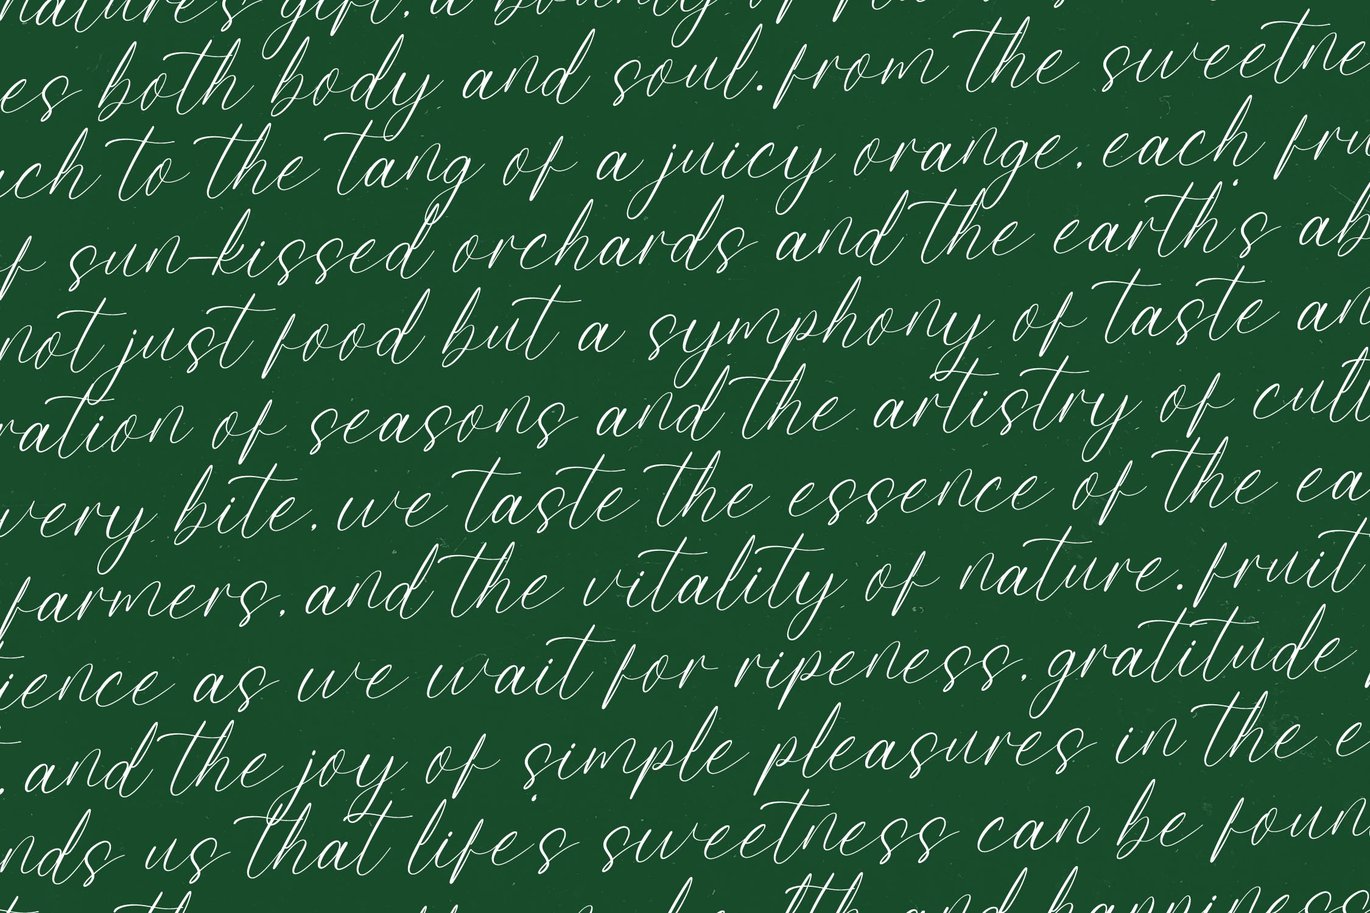 nature's gift, a bounty of
es both body and soul. from the sweetne
ch to the tang of a juicy orange, each fru
f sun-kissed orchards and the earth's ab
not just food but a symphony of taste an
ration of seasons and the artistry of cult
very bite, we taste the essence of the ea
farmers, and the vitality of nature. fruit
ience as we wait for ripeness, gratitude
, and the joy of simple pleasures in the e
nds us that life's sweetness can be foun
and happiness